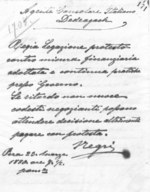 Agenzia Consolare Italiana
Dedeagach
Regia Legazione protesta
contro misura finanziaria
adottata e continua pratica
presso Governo.
Se ritardo non nuoce
codesti negozianti, possono
attendere decisione altrimenti
pagare con protesta.
Negri
Pera 22 Marzo